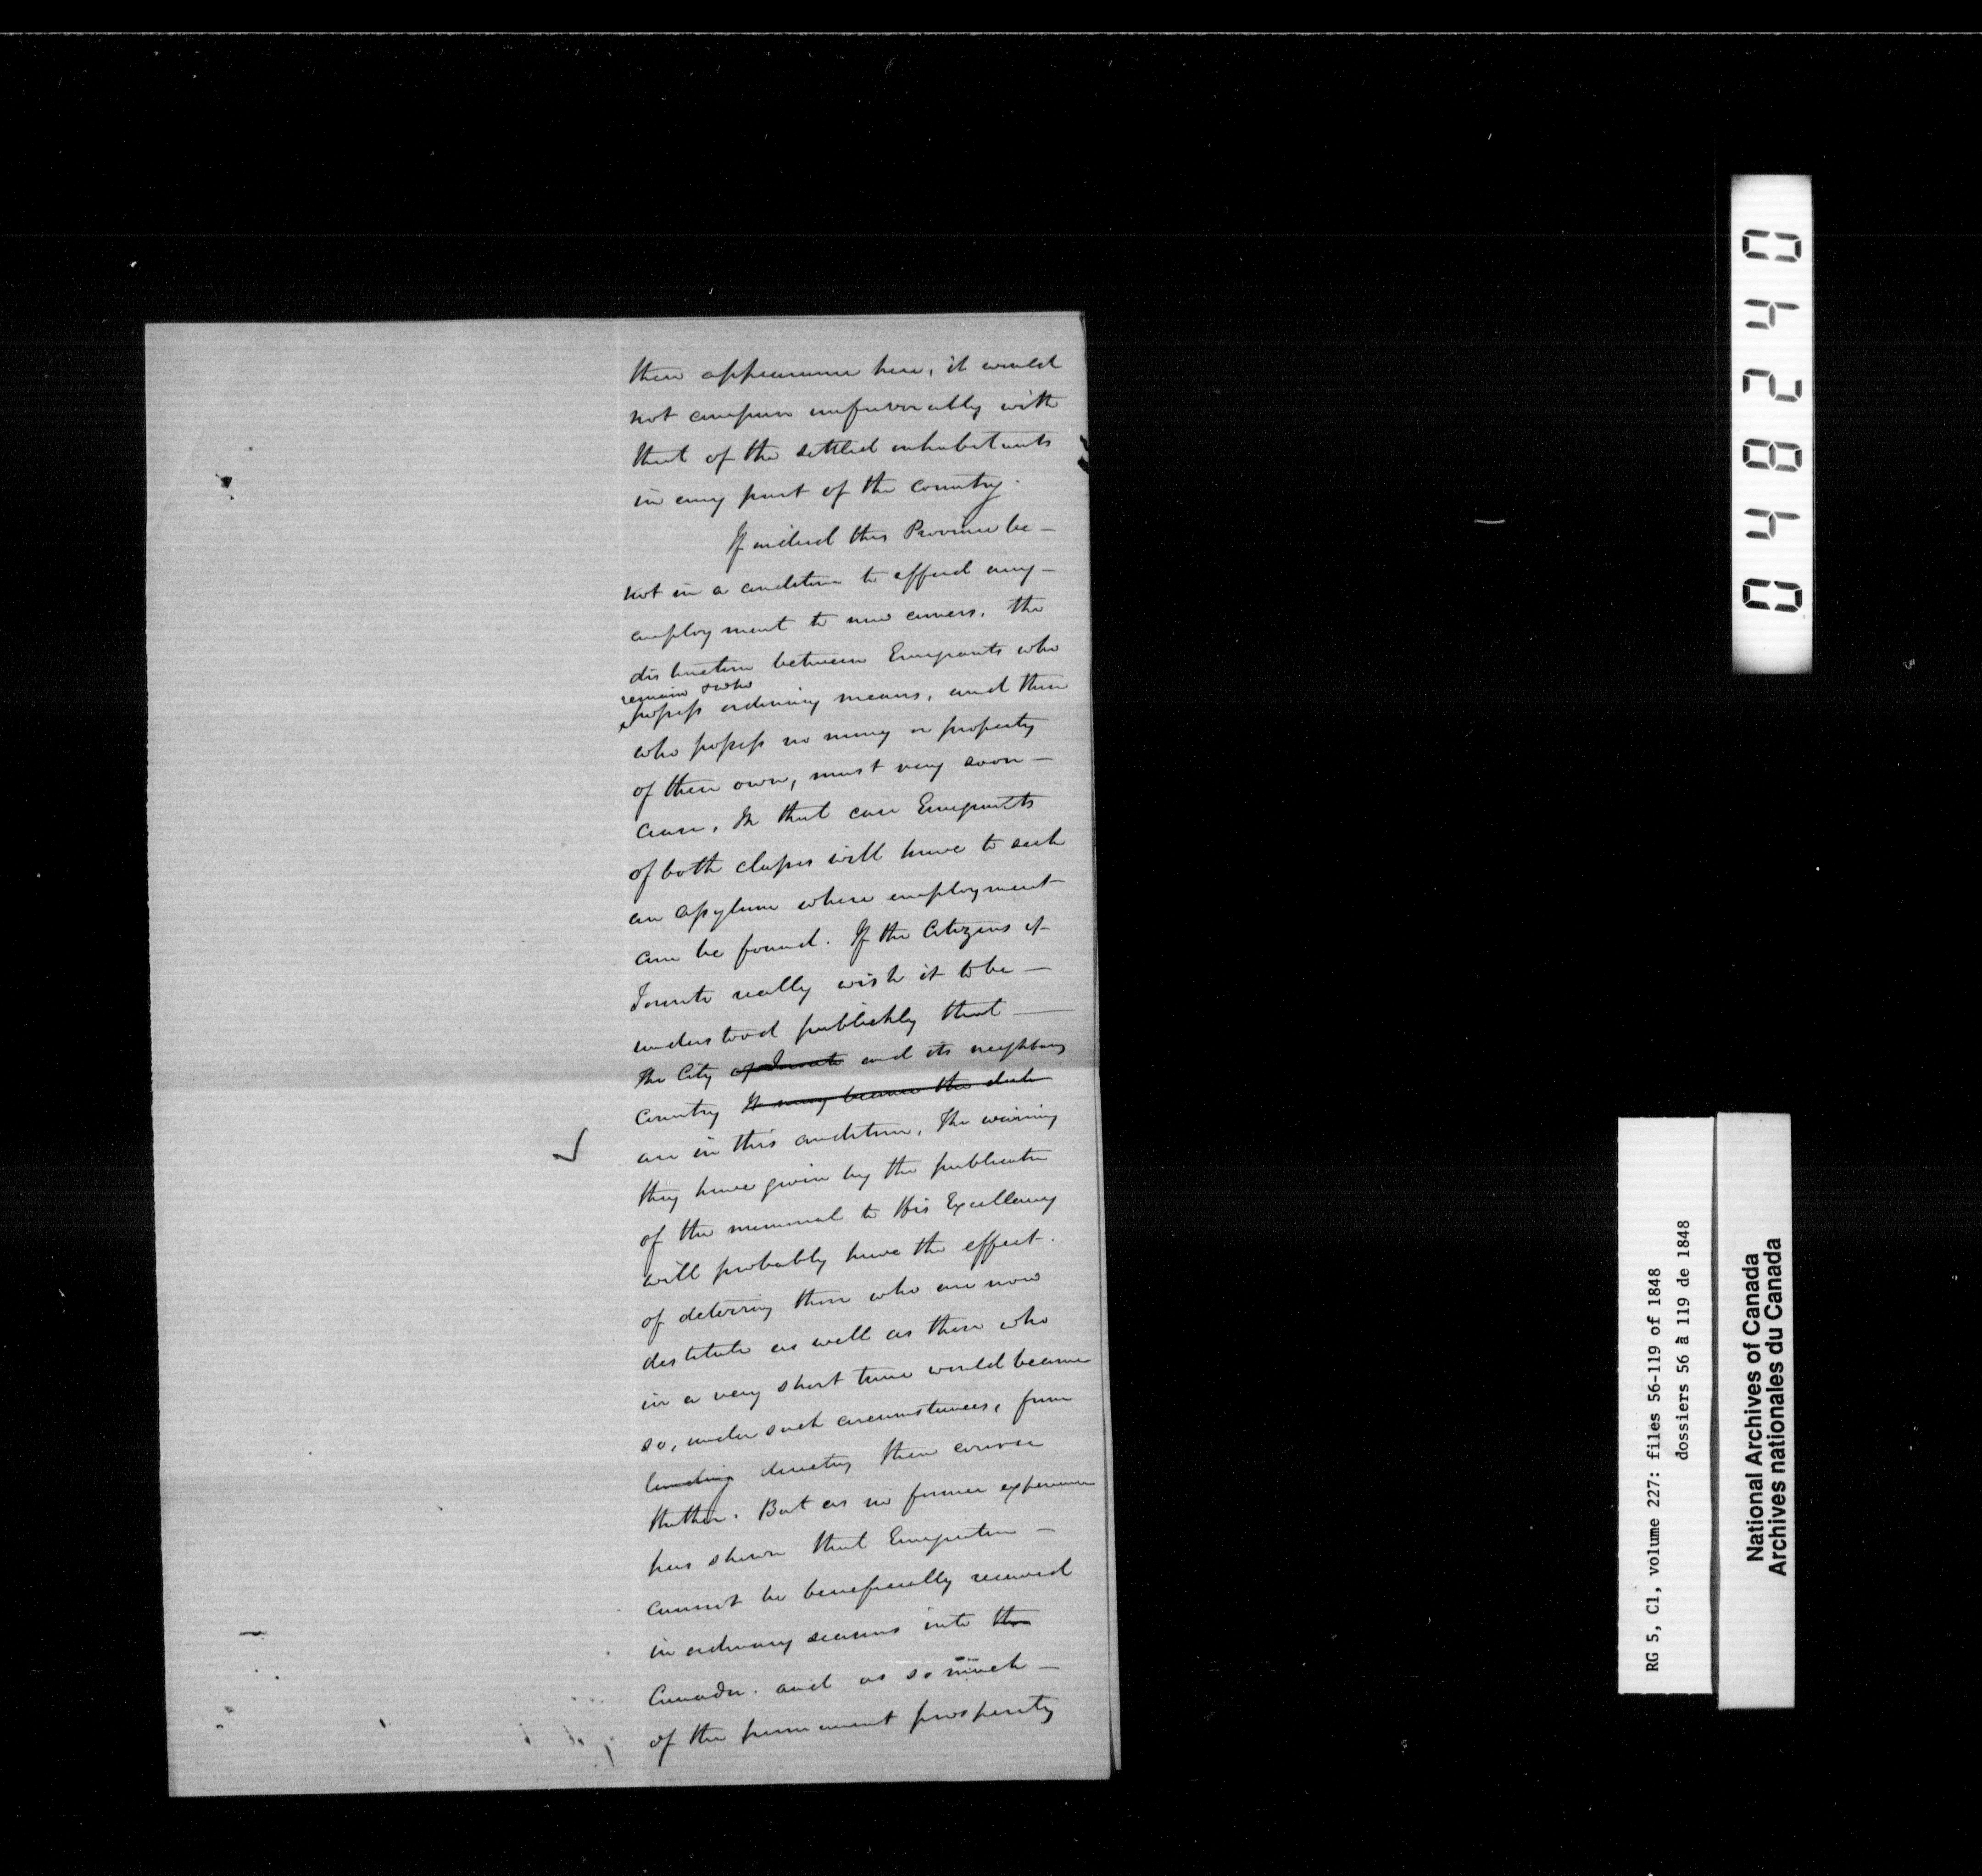 their appearance here, it would
not compare unfavorably with
that of the settled inhabitants
in any part of the country.
If indeed this Province be —
not in a condition to afford any —
employment to new comers, the
distinction between Emigrants who
remain & who
possess ordinary means, and those
who possess no money or property
of their own, must very soon —
cease, In that case Emigrants
of both classes will have to seek
an assylum where employment
can be found. If the Citizens of
Toronto really wish it to be —
understood publickly that —
the City of Toronto and its neighboring
country It may become the
are in this condition, the warning
they have given by the publication
of the memorial to His Excellency
will probably have the effect.
of deterring those who are now
destitute as well as those who
in a very short time would become
so, under such circumstances, from
landing directing their course
thither. But as no former experience
has shewn that Emigration —
cannot be beneficially received
in ordinary seasons into the
Canada. and as so much —
of the permanent prosperity
042840
RG 5, C1, volume 227: files 56-119 of 1848
dossiers 56 à 119 de 1848
National Archives of Canada
Archives nationales du Canada